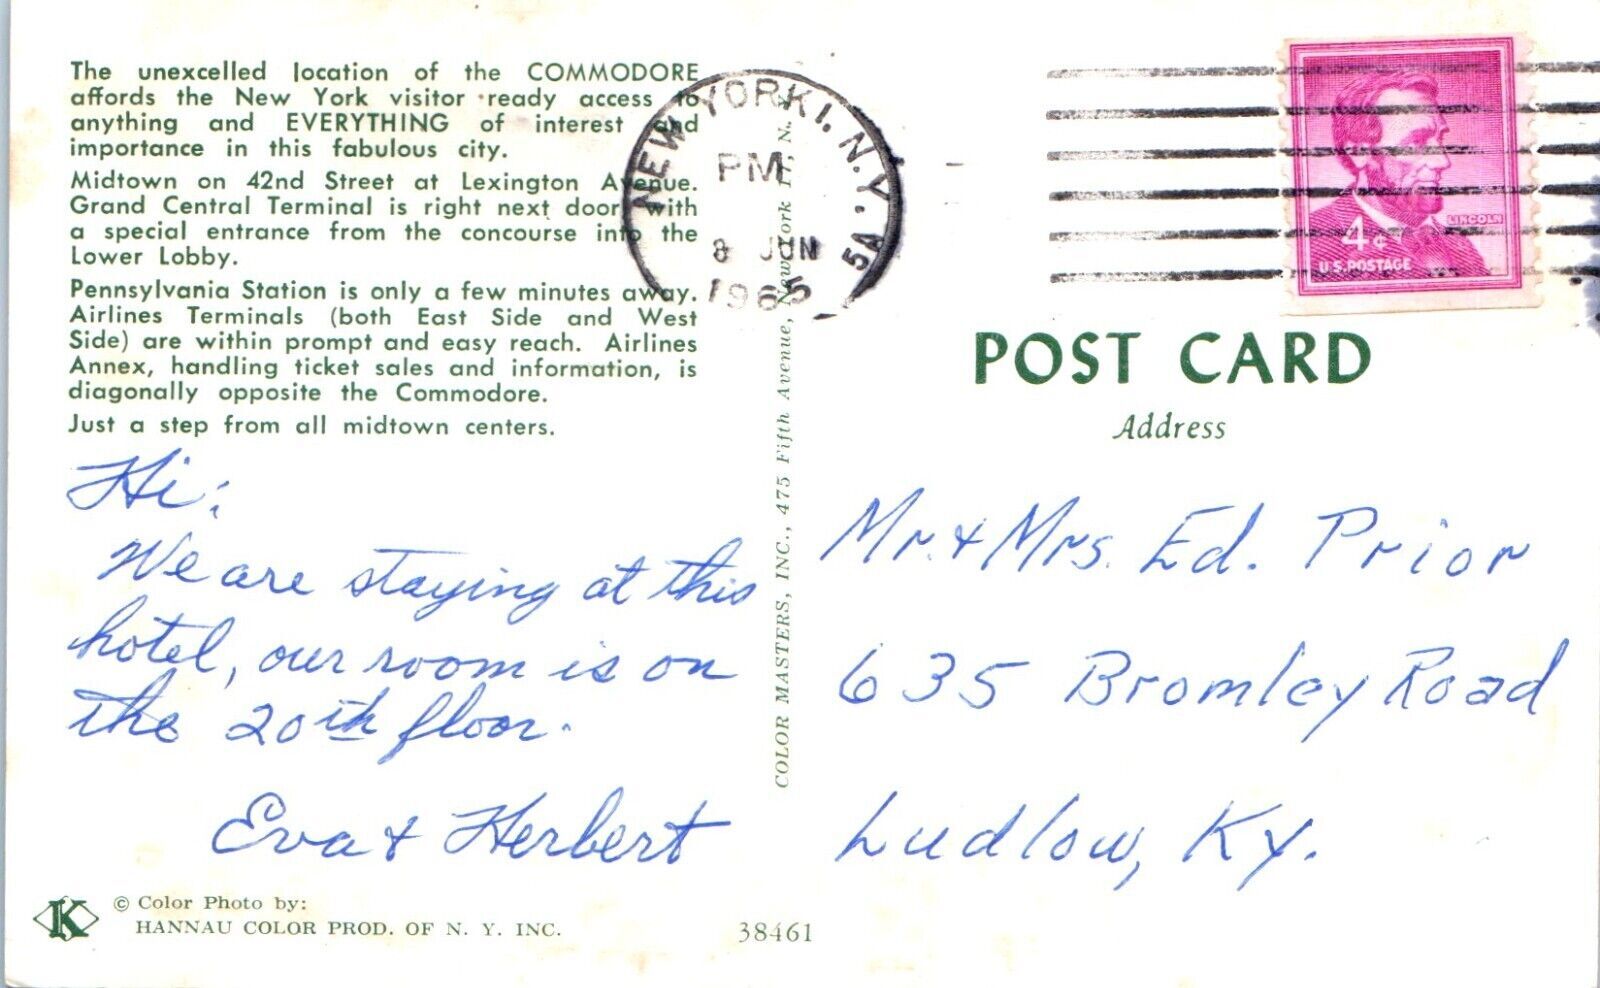 The unexcelled location of the COMMODORE
affords the New York visitor ready access to
anything and EVERYTHING of interest and
importance in this fabulous city.
Midtown on 42nd Street at Lexington Avenue.
Grand Central Terminal is right next door with
a special entrance from the concourse into the
Lower Lobby.
Pennsylvania Station is only a few minutes away.
Airlines Terminals (both East Side and West
Side) are within prompt and easy reach. Airlines
Annex, handling ticket sales and information, is
diagonally opposite the Commodore.
Just a step from all midtown centers.
Hi:
We are staying at this
hotel, our room is on
the 20th floor.
Eva & Herbert
K
© Color Photo by:
HANNAU COLOR PROD. OF N. Y. INC.
38461
COLOR MASTERS, INC., 475 Fifth Avenue, New York N.
NEW YORK 1, N.Y. 5A
PM
8 JUN
1965
LINCOLN
4¢
U.S. POSTAGE
POST CARD
Address
Mr. & Mrs. Ed. Prior
635 Bromley Road
Ludlow, Ky.